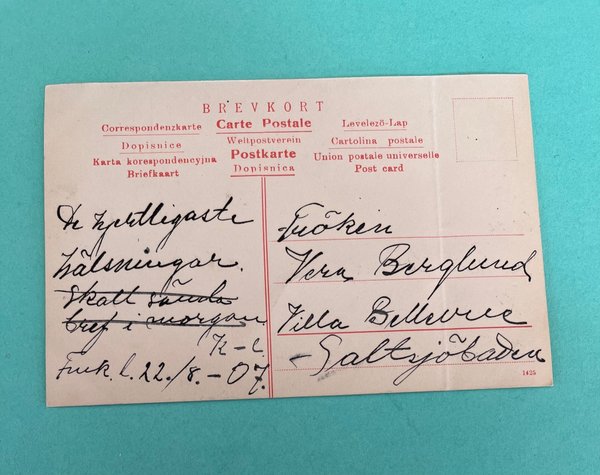 BREVKORT
Correspondenzkarte Carte Postale Levelező-Lap
Dopisnice Weltpostverein Cartolina postale
Karta korespondencyjna Postkarte Union postale universelle
Briefkaart Dopisnica Post card
De hjertligaste
hälsningar.
Skall sända
bref i morgon.
K-l.
22./8. - 07.
Fröken
Vera Berglund
Villa Bellevue
Saltsjöbaden
1425